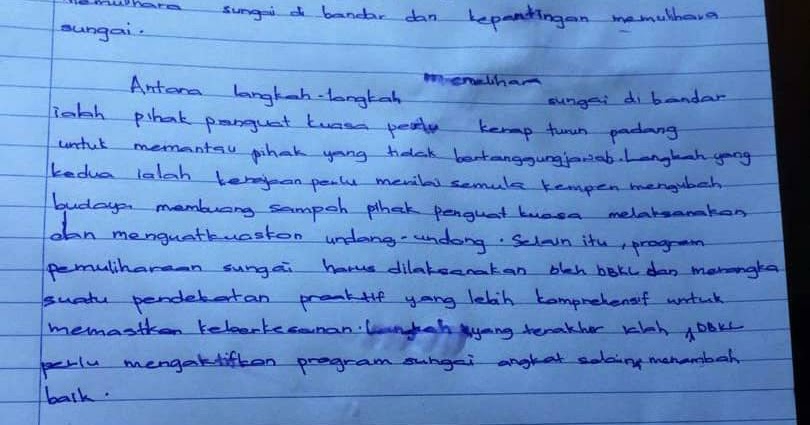 memulihara sungai di bandar dan kepentingan memulihara
sungai.
Antara langkah-langkah memelihara sungai di bandar
ialah pihak panguat kuasa perlu kerap turun padang
untuk memantau pihak yang tidak bertanggungjawab. Langkah yang
kedua ialah kerajaan perlu menilai semula kempen mengubah
budaya membuang sampah pihak penguat kuasa melaksanakan
dan menguatkuaskan undang-undang. Selain itu, program
pemuliharaan sungai harus dilaksanakan oleh DBKL dan merangka
suatu pendekatan proaktif yang lebih komprehensif untuk
memastikan keberkesanan. Langkah yang terakhir ialah, DBKL
perlu mengaktifkan program sungai angkat menambah
baik.